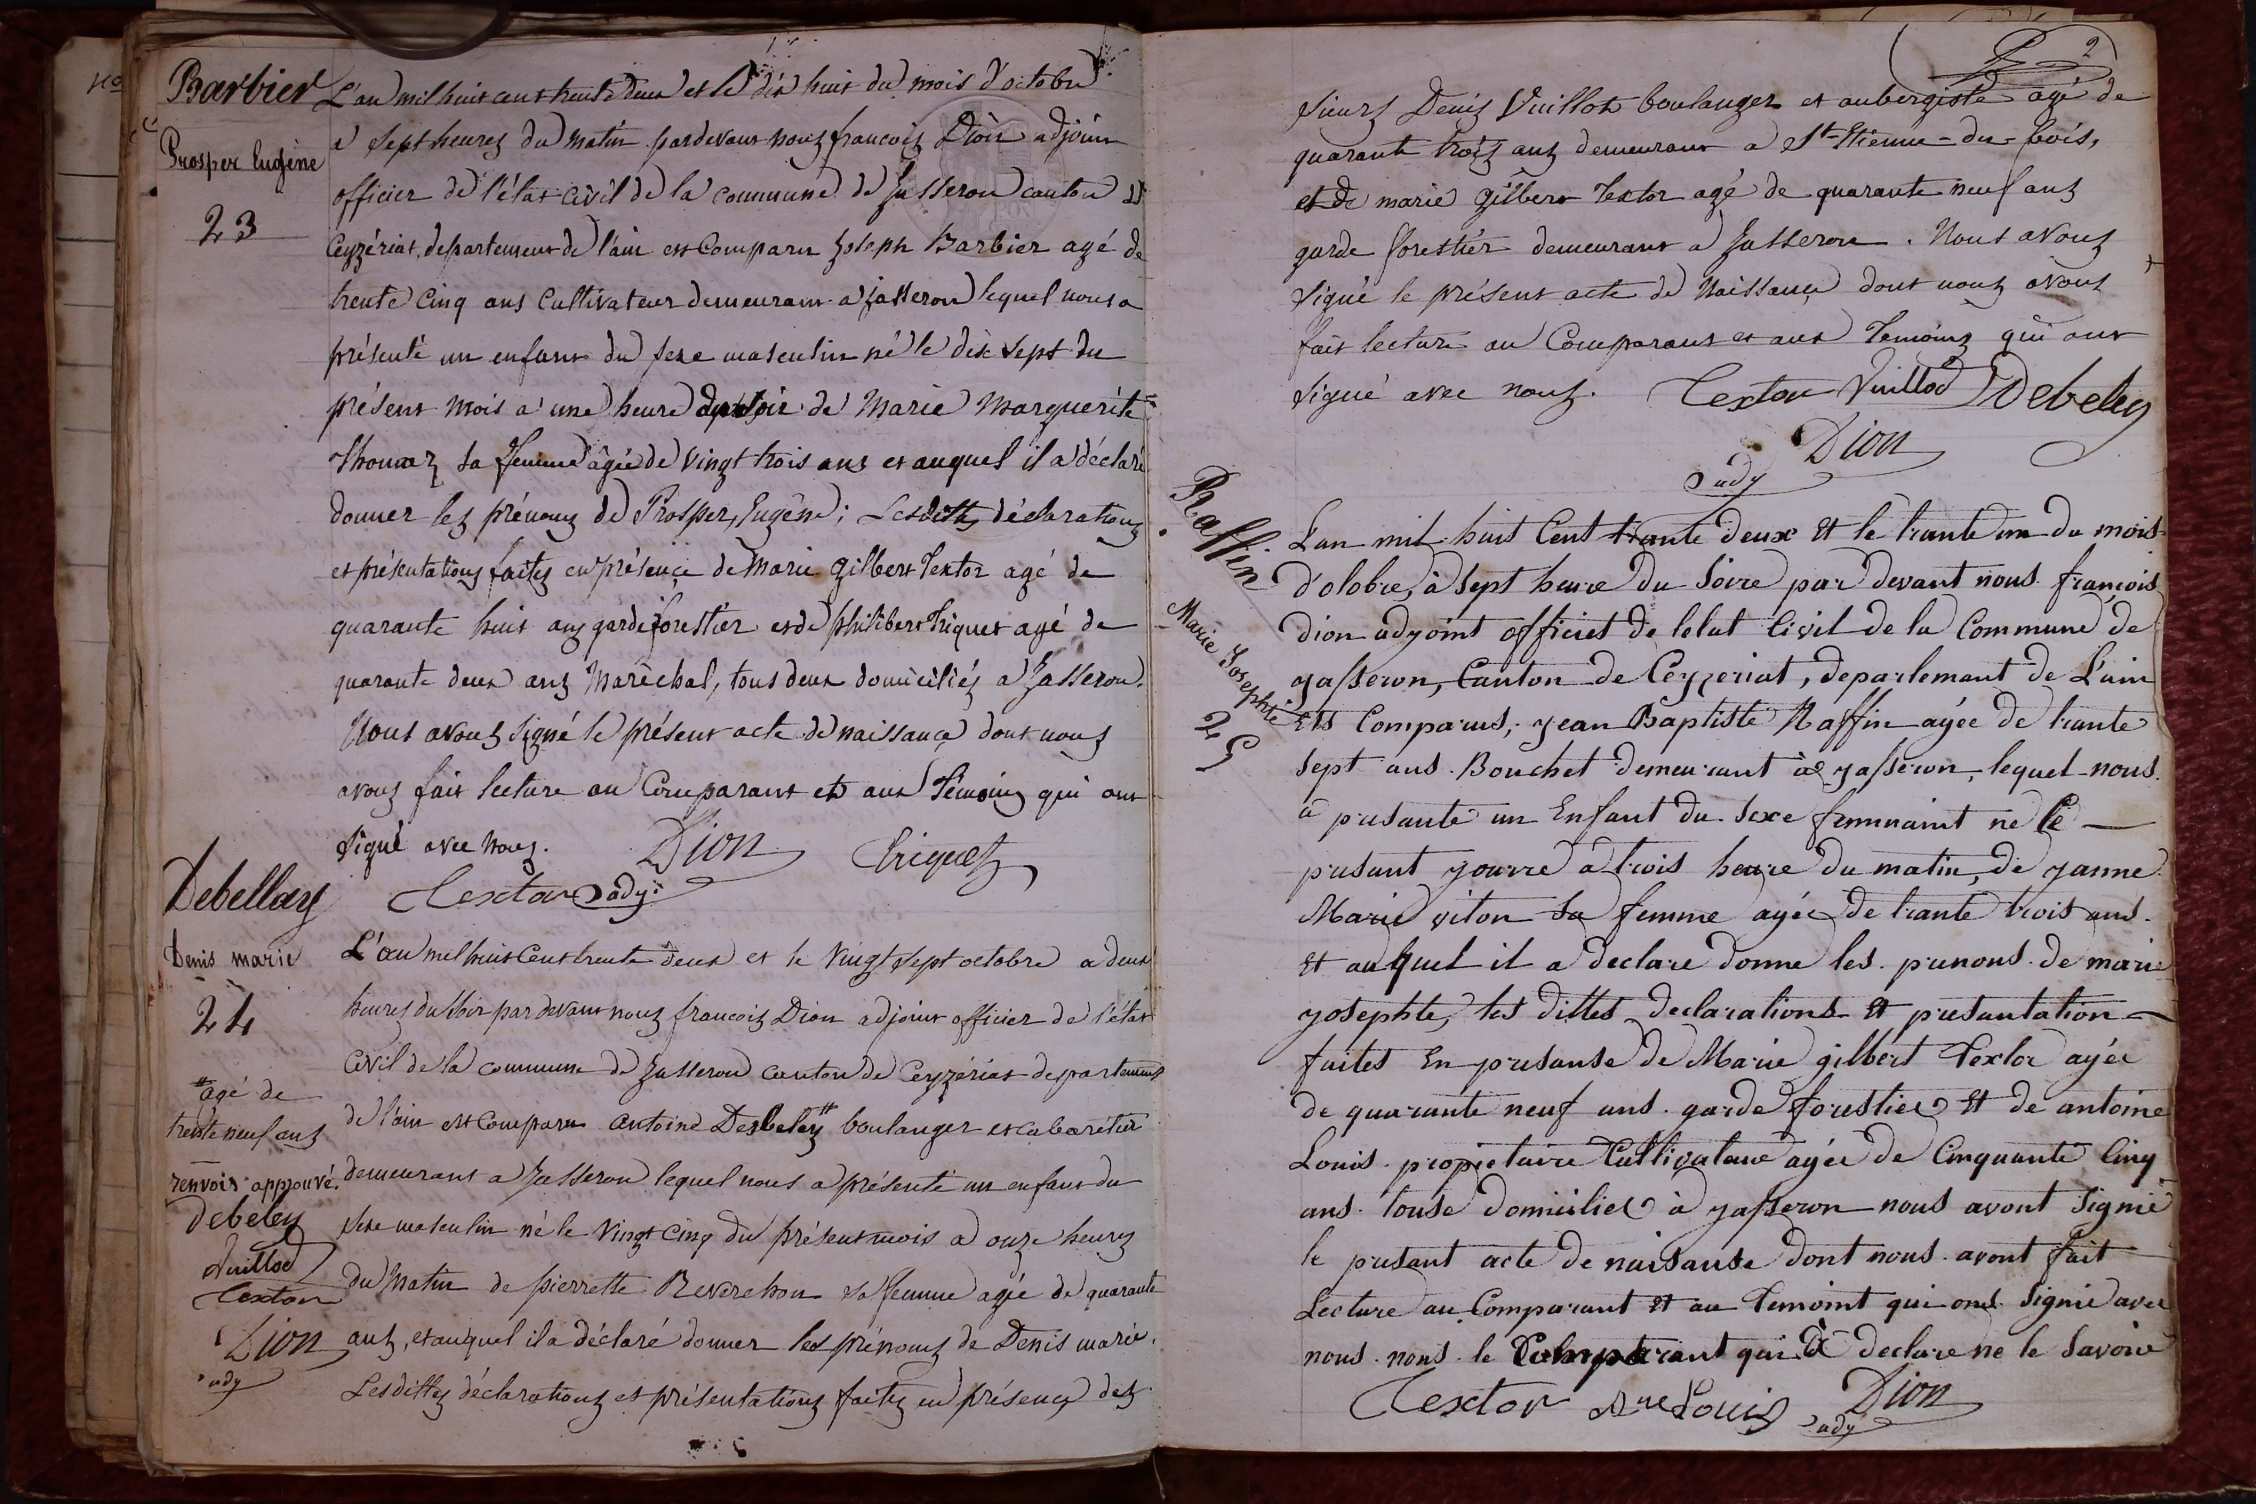 Barbier
Prosper Eugène
23
L'an mil huit cent trente deux et le dix huit du mois d'octobre
à sept heures du matin pardevant nous françois Dion adjoint
officier de l'état civil de la commune de Jasseron canton de
Ceyzériat, departement de l'ain est Comparu Joseph Barbier agé de
trente Cinq ans Cultivateur demeurant a jasseron lequel nous a
présenté un enfant du sexe masculin né le dix sept du
présent mois a une heure du soir de Marie Marguerite
Thomaz sa femme âgée de vingt trois ans et auquel il a déclaré
donner les prénoms de Prosper, Eugène; Lesdittes déclarations
et présentations faites en présence de Marie gilbert Textor agé de
quarante huit ans garde forestier et de philibert Triquet agé de
quarante deux ans Maréchal, tous deux domiciliés a Jasseron.
Nous avons signé le présent acte de naissance dont nous
avons fait lecture au Comparant et aux Témoins qui ont
signé avec nous. Dion Triquet
Textor adj.
Debellay
Denis marie
24
# agé de
trente neuf ans
renvois approuvé.
debeley
Vuillod
Textor
Dion
adj
L'an mil huit Cent trente deux et le Vingt sept octobre a deux
heures du soir par devant nous françois Dion adjoint officier de l'état
Civil de la commune de Jasseron canton de Ceyzériat departement
de l'ain est Comparu antoine Desbeley # boulanger et cabaretier
demeurant a Jasseron lequel nous a présenté un enfant du
sexe masculin né le Vingt Cinq du présent mois a onze heures
du matin de pierrette Reverchon sa femme agée de quarante
ans, et auquel il a déclaré donner les prénoms de Denis marie.
Lesdittes déclarations et présentations faites en présence des
2
sieurs Denis Vuillot boulanger et aubergiste agé de
quarante trois ans demeurant a St-Etienne-du-bois,
et de marie gilbert Textor agé de quarante neuf ans
garde forestier demeurant a Jasseron. Nous avons
signé le présent acte de Naissance dont nous avons
fait lecture au Comparant et aux Temoins qui ont
signé avec nous. Textor Vuillod Debeley
Dion
adj
Raffin
Marie Josephte
25
Lan mil huit Cent trante deux et le trante un du mois
d'olobre, à sept heure du soire par devant nous françois
dion adjoint officiet de letat Civil de la Commune de
jasseron, Canton de Ceyzeriat, departement de L'ain
Ets Comparus, jean Baptiste Raffin agée de trante
sept ans. Bouchet demeurant à jasseron, lequel nous
a prusante un Enfant du sexe femmaint ne le
prusant jourre a trois heure du matin, de janne
Marie viton sa femme agée de trante trois ans.
Et auquel il a declare donne les prunons de marie
josephte, les dittes declarations Et prusantation
faites En prusanse de Marie gilbert Textor agée
de quarante neuf ans. garde forestier Et de antoine
Louis propietaire Cultivateure agée de Cinquante Cinq
ans. touse domicilies à jasseron nous avont signié
le prusant acte de naisanse dont nous avont fait
Lecture au Comparant et au temoint qui ont signié avec
nous. nons le Comparant qui à declare ne le savoire
Textor Ane Louis Dion
adj